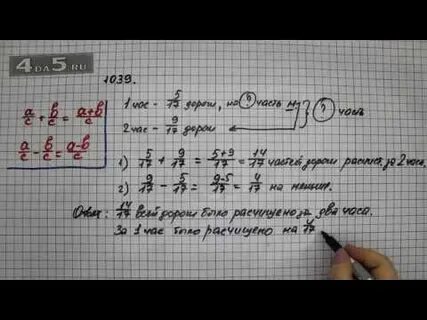 4DA5.RU
1039.
a/c + b/c = a+b/c
a/c - b/c = a-b/c
1 час - 5/17 дороги, на ? часть м
2 час - 9/17 дороги
? часть
1) 5/17 + 9/17 = 5+9/17 = 14/17 частей дороги расчис. за 2 часа.
2) 9/17 - 5/17 = 9-5/17 = 4/17 на меньше.
Ответ: 14/17 всей дороги было расчищено за два часа.
За 1 час было расчищено на 4/17